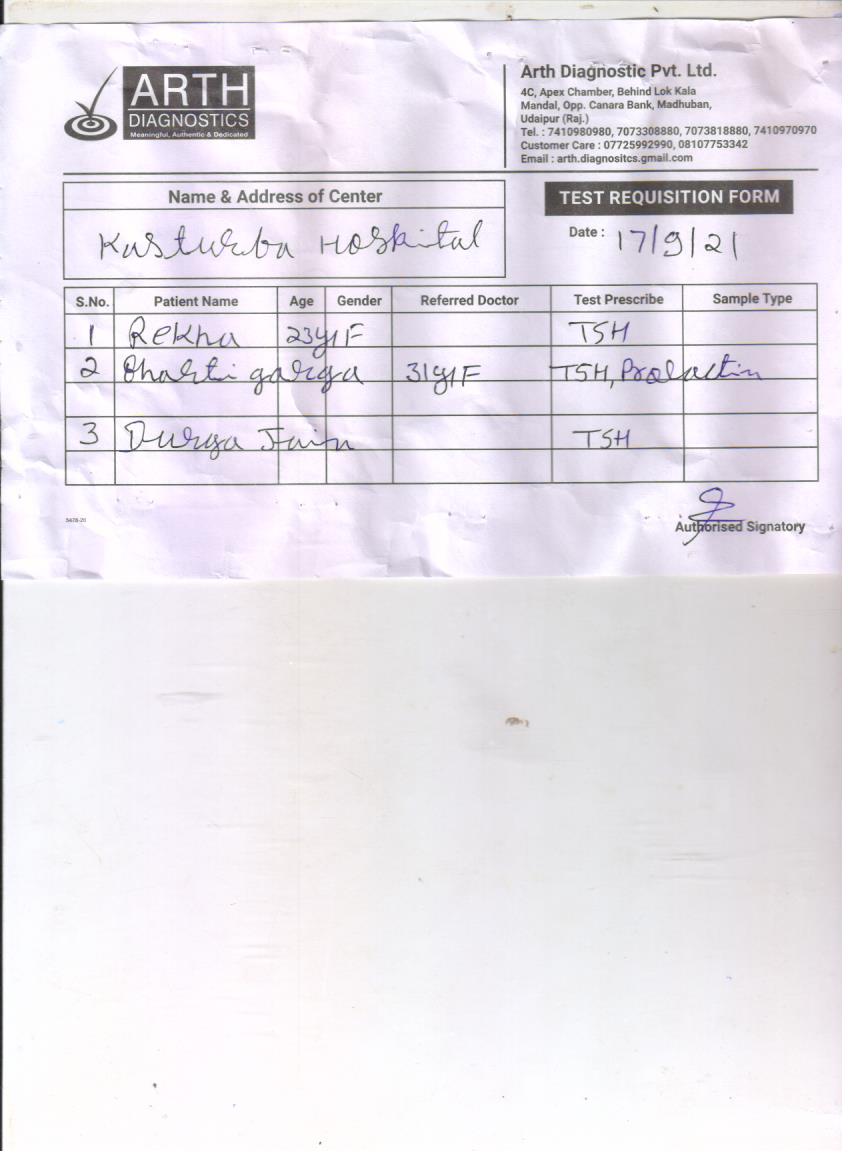 ARTH
DIAGNOSTICS
Meaningful, Authentic & Dedicated
Arth Diagnostic Pvt. Ltd.
4C, Apex Chamber, Behind Lok Kala
Mandal, Opp. Canara Bank, Madhuban,
Udaipur (Raj.)
Tel. : 7410980980, 7073308880, 7073818880, 7410970970
Customer Care : 07725992990, 08107753342
Email : arth.diagnositcs.gmail.com
Name & Address of Center
Kasturba Hospital
TEST REQUISITION FORM
Date : 17/9/21
S.No. Patient Name Age Gender Referred Doctor Test Prescribe Sample Type
1 Rekha 23y/F TSH
2 Bharti garga 31y/F TSH, Prolactin
3 Durga Jain TSH
5478-20
Authorised Signatory